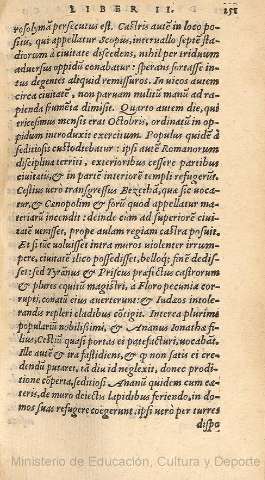 LIBER II. 251
rosolymā persecutus est. Castris autē in loco po-
sitis, qui appellatur Scopus, interuallo septē sta-
diorum à ciuitate discedens, nihil per triduum
aduersus oppidū conabatur: sperans fortasse in-
tus degentes aliquid remissuros. In uicos autem
circa ciuitatē, non paruam militū manū ad ra-
pienda frumēta dimisit. Quarto autem die, qui
tricesimus mensis erat Octobris, ordinatū in op-
pidum introduxit exercitum. Populus quidē à
seditiosis custodiebatur: ipsi autē Romanorum
disciplina territi, exterioribus cessere partibus
ciuitatis, & in partē interiorē templi refugerūt.
Cestius uero transgressus Bezethā, quæ sic uoca-
tur, & Cœnopolim & forū quod appellatur ma-
teriarū incendit: deinde cùm ad superiorē ciui-
tatē uenisset, prope aulam regiam castra posuit.
Et si tūc uoluisset intra muros uiolenter irrum-
pere, ciuitatē ilico possedisset, belloq; finē dedis-
set: sed Tyrānus & Priscus præfectus castrorum
& plures equitū magistri, à Floro pecunia cor-
rupti, conatū eius auerterunt: & Iudæos intole-
randis repleri cladibus cōtigit. Interea plurimi
popularū nobilissimi, & Ananus Ionathæ fi-
lius, Cestiū quasi portas ei patefacturi, uocabāt.
Ille autē & ira fastidiens, & ꝙ non satis ei cre-
dendū putaret, tā diu id neglexit, donec prodi-
tione cōperta, seditiosi Ananū quidem cum cæ-
teris, de muro deiectis lapidibus feriendo, in do-
mos suas refugere coegerunt. ipsi uerò per turres
dispo
Ministerio de Educación, Cultura y Deporte